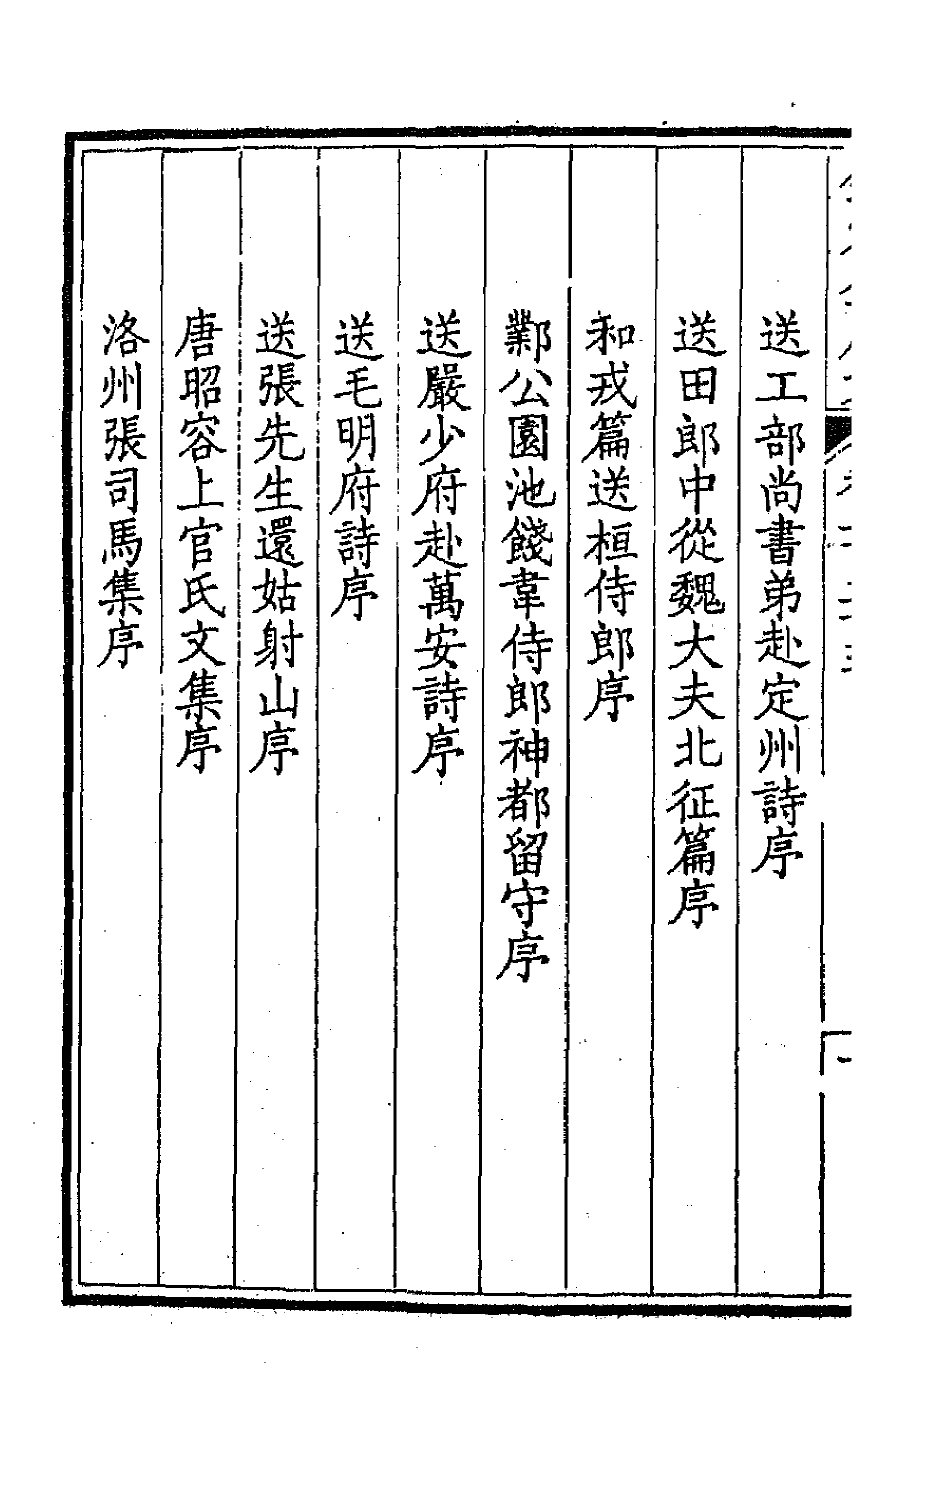 送工部尚書弟赴定州詩序
送田郎中從魏大夫北征篇序
和戎篇送桓侍郎序
鄴公園池餞韋侍郎神都留守序
送嚴少府赴萬安詩序
送毛明府詩序
送張先生還姑射山序
唐昭容上官氏文集序
洛州張司馬集序